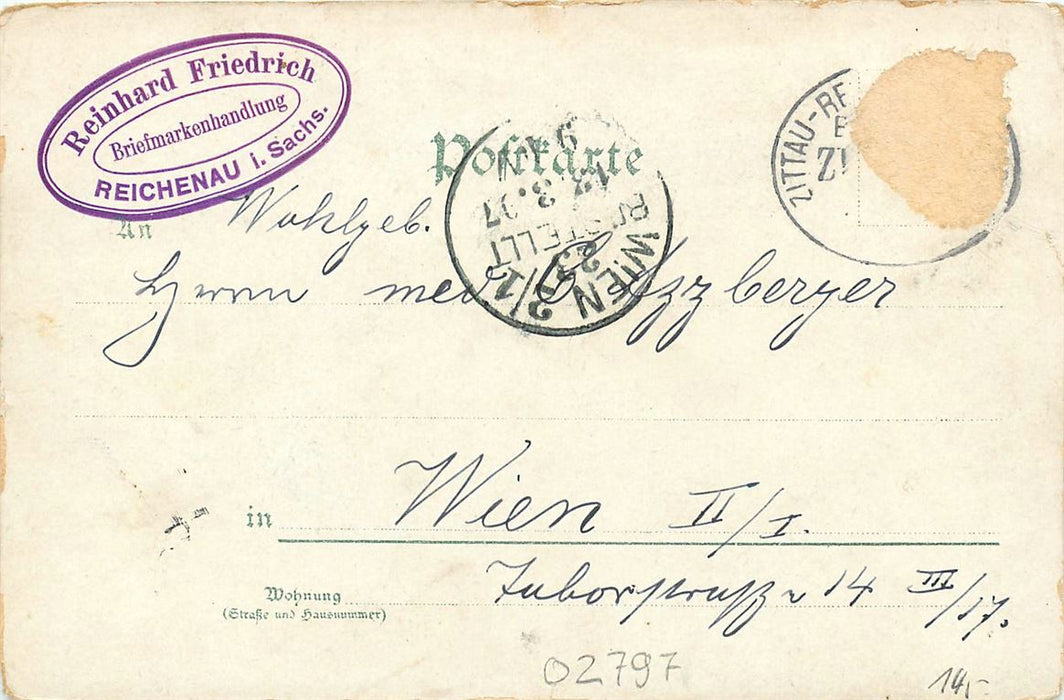 Reinhard Friedrich
Briefmarkenhandlung
REICHENAU i. Sachs.
Postkarte
ZITTAU-RE
WIEN 2/1
BESTELLT
An Wohlgeb.
Herrn med
in Wien II/I.
Wohnung
(Straße und Hausnummer)
Taborstraße 14 III/17.
02797
14,-